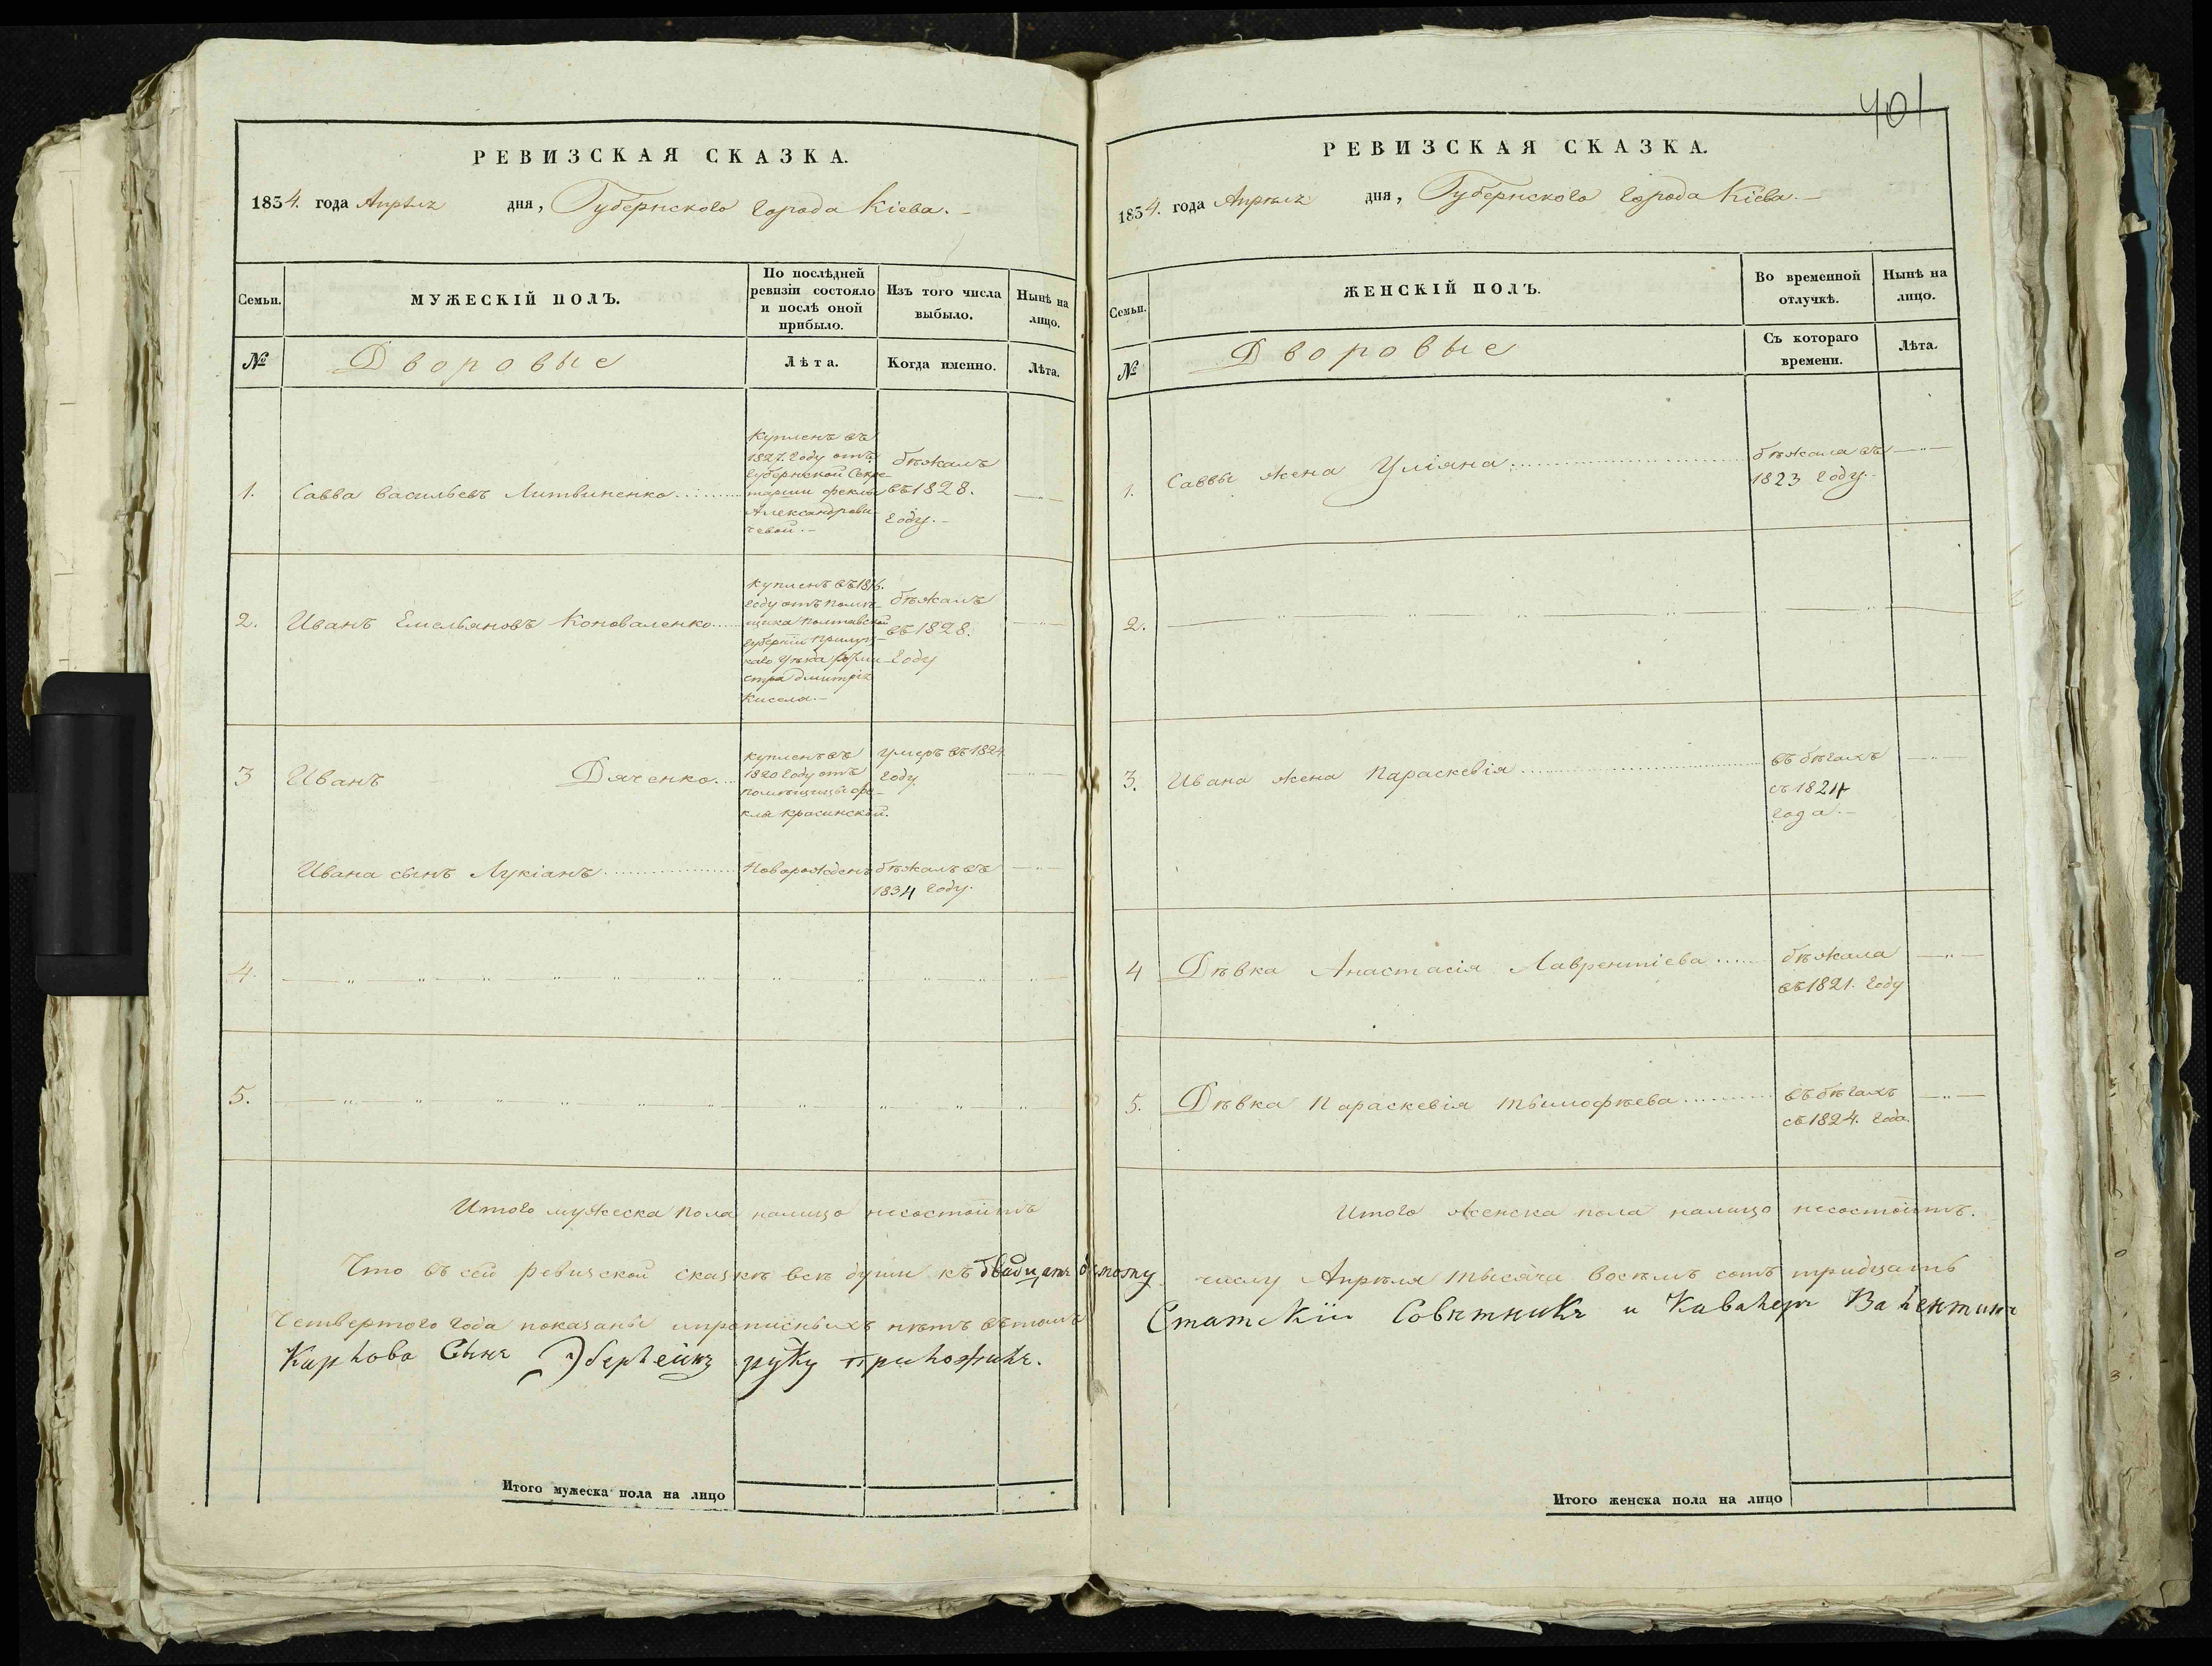 401
РЕВИЗСКАЯ СКАЗКА.
1834. года Апрѣля дня, Губернского города Кіева.
Семьи. МУЖЕСКІЙ ПОЛЪ. По послѣдней ревизіи состояло и послѣ оной прибыло. Изъ того числа выбыло. Нынѣ на лицо.
№ Дворовые Лѣта. Когда именно. Лѣта.
1. Савва васильевъ Литвиненко
Купленъ въ
1827. году отъ
Губернской Секре-
тарши феклы
Александрови-
чевой.
бѣжалъ
въ 1828.
году.
2. Иванъ Емельяновъ Коноваленко
Купленъ въ 1816.
году отъ помѣ-
щика Полтавской
губерніи Прилуц-
каго уѣзда
дмитрія
Кисела.
бѣжалъ
въ 1828.
году
3 Иванъ Дяченко
купленъ въ
1820 году отъ
помѣщицы фе-
клы Красинской.
умеръ въ 1824
году.
Ивана сынъ Лукіанъ
Новорожденъ
бѣжалъ въ
1834 году.
4.
5.
Итого мужеска пола налицо несостоитъ
Что въ сей ревизской сказкѣ всѣ души къ двадцать
Четвертого года показаны и прописныхъ нѣтъ въ томъ
Карлова Сынъ Эберлейнъ руку приложилъ.
Итого мужеска пола на лицо
РЕВИЗСКАЯ СКАЗКА.
1834. года Апрѣля дня, Губернского города Кіева.
Семьи. ЖЕНСКІЙ ПОЛЪ. Во временной отлучкѣ. Нынѣ на лицо.
№ Дворовые Съ котораго времени. Лѣта.
1. Саввы жена Уліяна
бѣжала въ
1823 году.
2.
3. Ивана жена Параскевія
въ бѣгахъ
съ 1824
года.
4 Дѣвка Анастасія Лаврентіева
бѣжала
въ 1821. году
5. Дѣвка Параскевія тымофѣева
въ бѣгахъ
съ 1824. года.
Итого женска пола налицо несостоитъ.
числу Апрѣля тысяча восѣмъ сотъ тридцать
Статскій Совѣтникъ и Кавалеръ Валентинъ
Итого женска пола на лицо